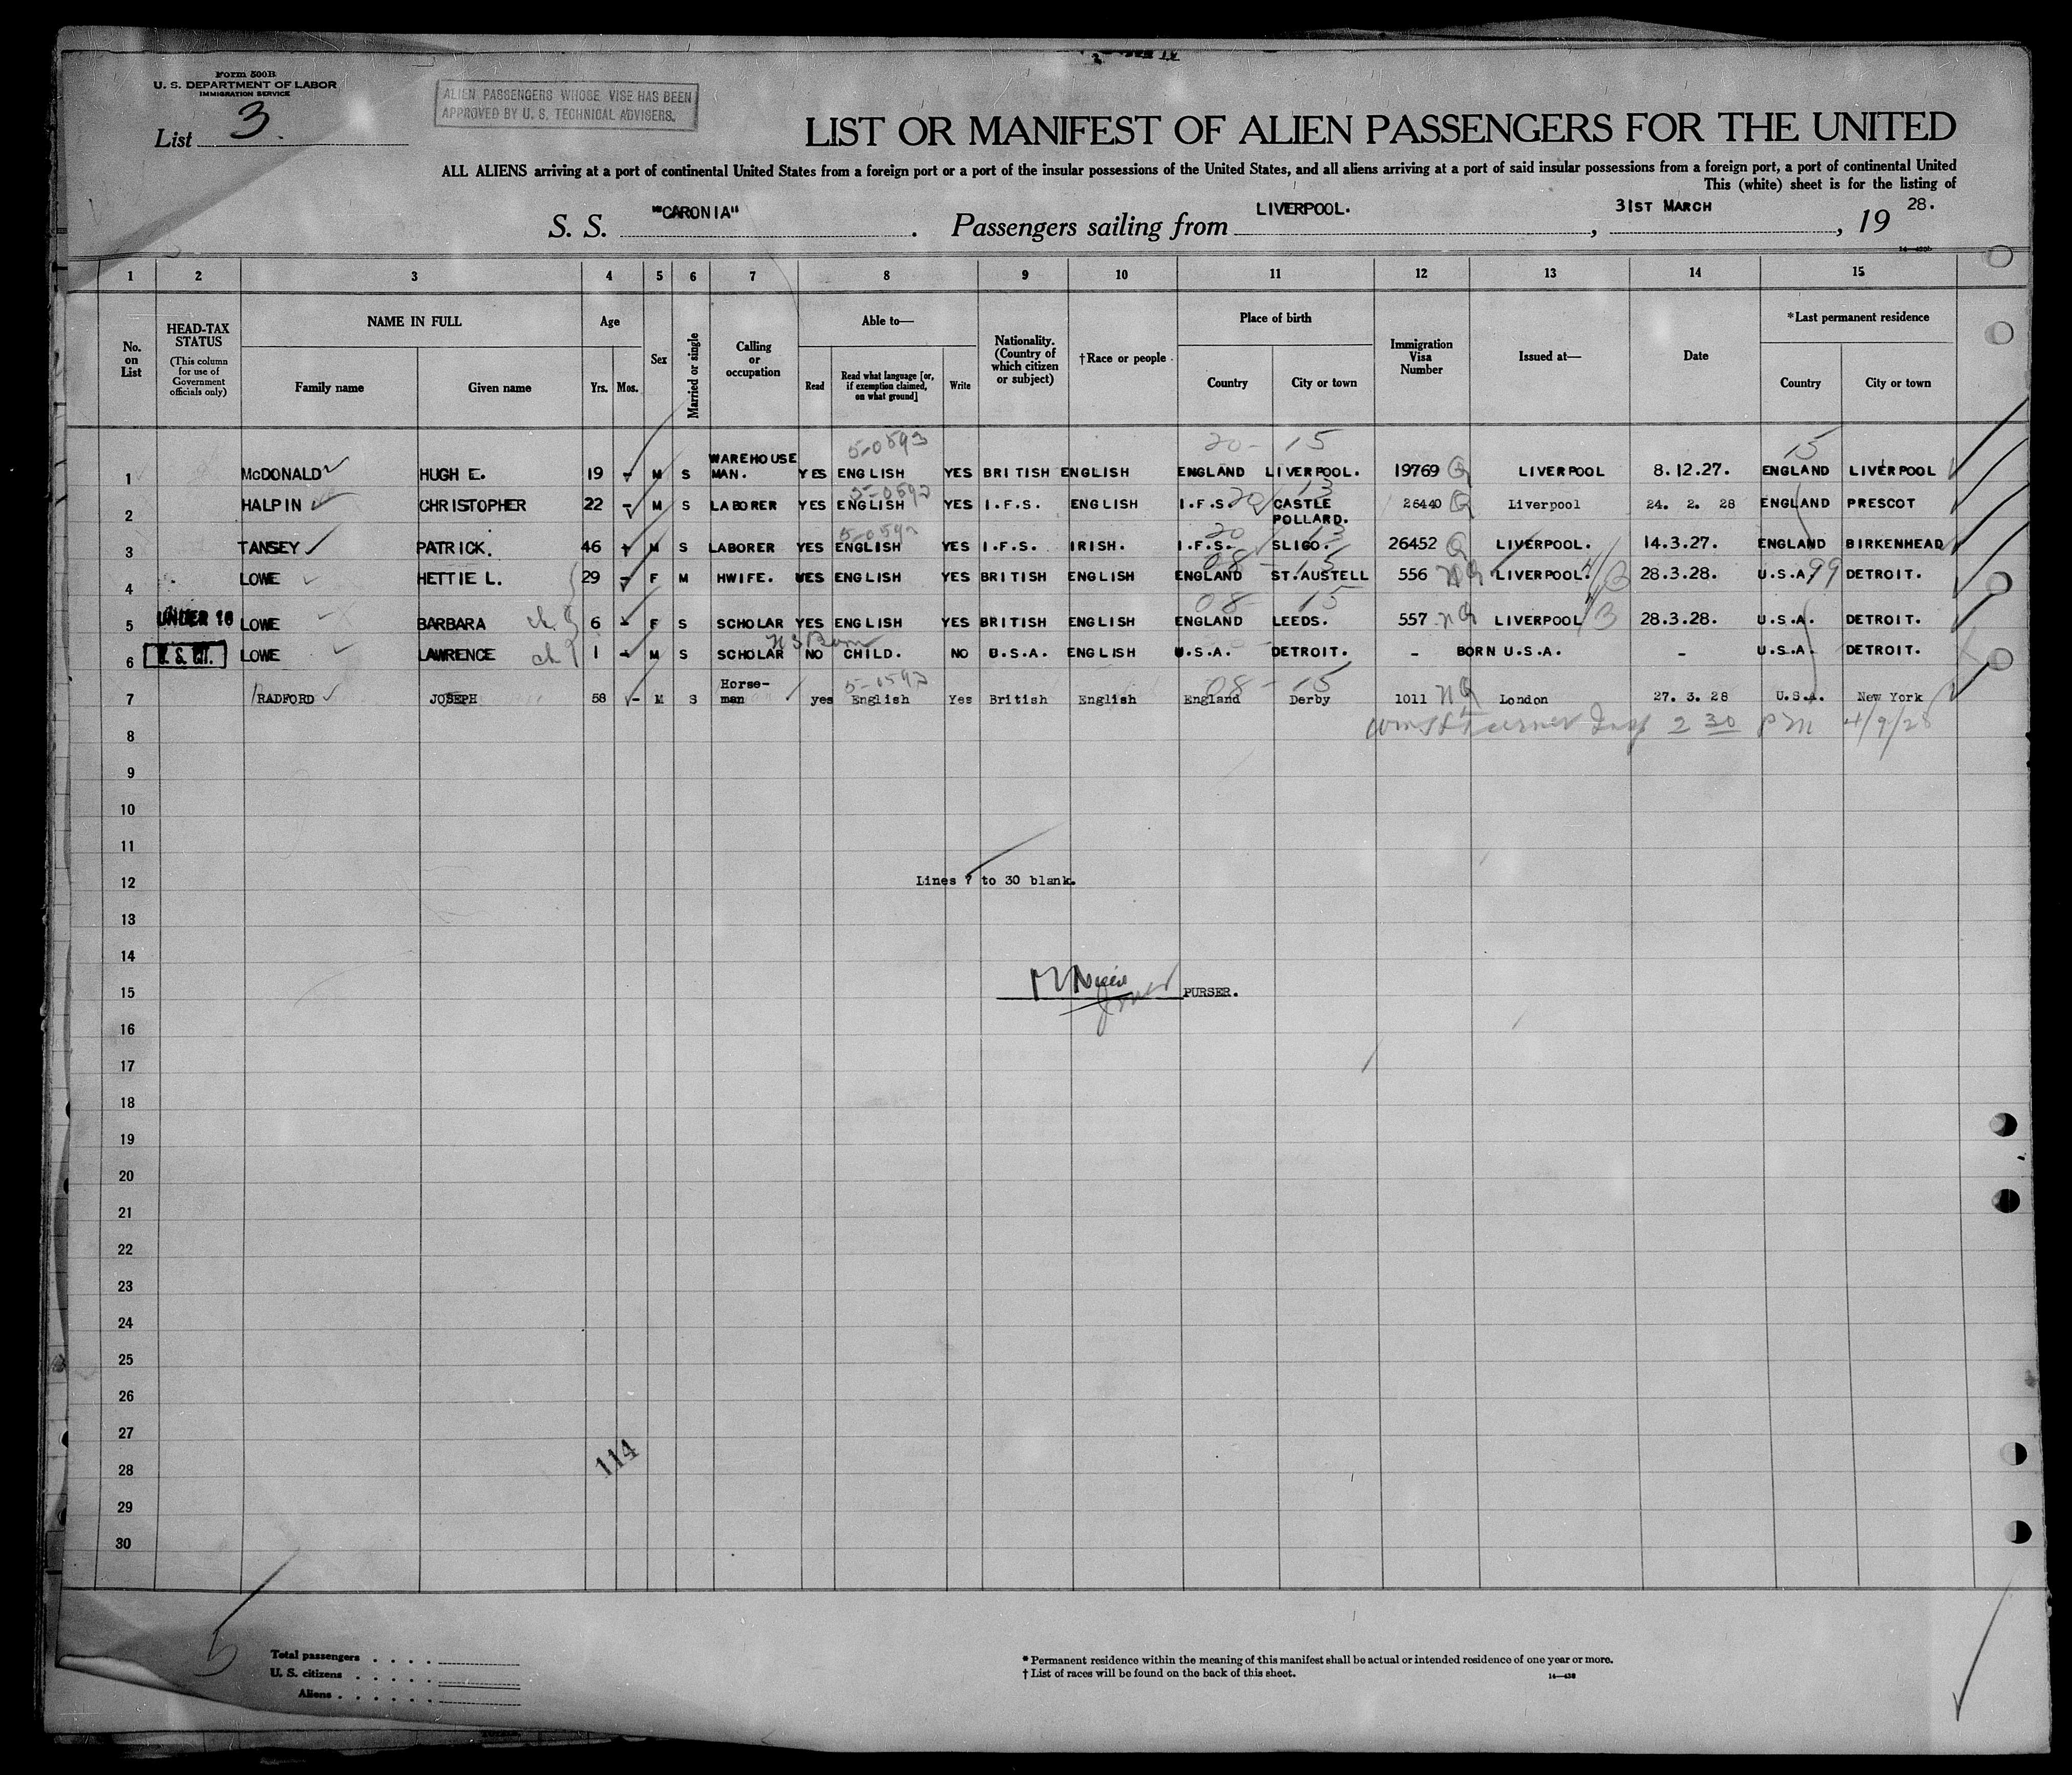 Form 500B
U. S. DEPARTMENT OF LABOR
IMMIGRATION SERVICE
ALIEN PASSENGERS WHOSE VISE HAS BEEN
APPROVED BY U. S. TECHNICAL ADVISERS.
List 3.
LIST OR MANIFEST OF ALIEN PASSENGERS FOR THE UNITED
ALL ALIENS arriving at a port of continental United States from a foreign port or a port of the insular possessions of the United States, and all aliens arriving at a port of said insular possessions from a foreign port, a port of continental United
This (white) sheet is for the listing of
S. S. "CARONIA". Passengers sailing from LIVERPOOL., 31ST MARCH, 19 28.
1 2 3 4 5 6 7 8 9 10 11 12 13 14 15
No. on List
HEAD-TAX STATUS (This column for use of Government officials only)
NAME IN FULL Family name Given name
Age Yrs. Mos.
Sex
Married or single
Calling or occupation
Able to— Read Read what language [or, if exemption claimed, on what ground] Write
Nationality. (Country of which citizen or subject)
†Race or people
Place of birth Country City or town
Immigration Visa Number
Issued at—
Date
*Last permanent residence Country City or town
5-0593 20- 15 15
1 McDONALD HUGH E. 19 - M S WAREHOUSE MAN. YES ENGLISH YES BRITISH ENGLISH ENGLAND LIVERPOOL. 19769 Q LIVERPOOL 8.12.27. ENGLAND LIVERPOOL
2 HALPIN CHRISTOPHER 22 - M S LABORER YES ENGLISH YES I.F.S. ENGLISH I.F.S. CASTLE POLLARD. 26440 Q Liverpool 24. 2. 28 ENGLAND PRESCOT
3 TANSEY PATRICK. 46 - M S LABORER YES ENGLISH YES I.F.S. IRISH. I.F.S. SLIGO. 26452 Q LIVERPOOL. 14.3.27. ENGLAND BIRKENHEAD
4 LOWE HETTIE L. 29 - F M HWIFE. YES ENGLISH YES BRITISH ENGLISH ENGLAND ST.AUSTELL 556 NQ LIVERPOOL. 28.3.28. U.S.A. 99 DETROIT.
08- 15
5 UNDER 16 LOWE BARBARA 6 - F S SCHOLAR YES ENGLISH YES BRITISH ENGLISH ENGLAND LEEDS. 557 NQ LIVERPOOL 28.3.28. U.S.A. DETROIT.
US Born
6 U. S. CIT. LOWE LAWRENCE 1 - M S SCHOLAR NO CHILD. NO U.S.A. ENGLISH U.S.A. DETROIT. - BORN U.S.A. - U.S.A. DETROIT.
08- 15
7 RADFORD JOSEPH 58 - M S Horse-man yes English Yes British English England Derby 1011 NQ London 27. 3. 28 U.S.A. New York
8 2 30 PM 4/9/28
9
10
11
12 Lines 7 to 30 blank.
13
14
15 PURSER.
16
17
18
19
20
21
22
23
24
25
26
27
114
28
29
30
Total passengers
U. S. citizens
Aliens
* Permanent residence within the meaning of this manifest shall be actual or intended residence of one year or more.
† List of races will be found on the back of this sheet.